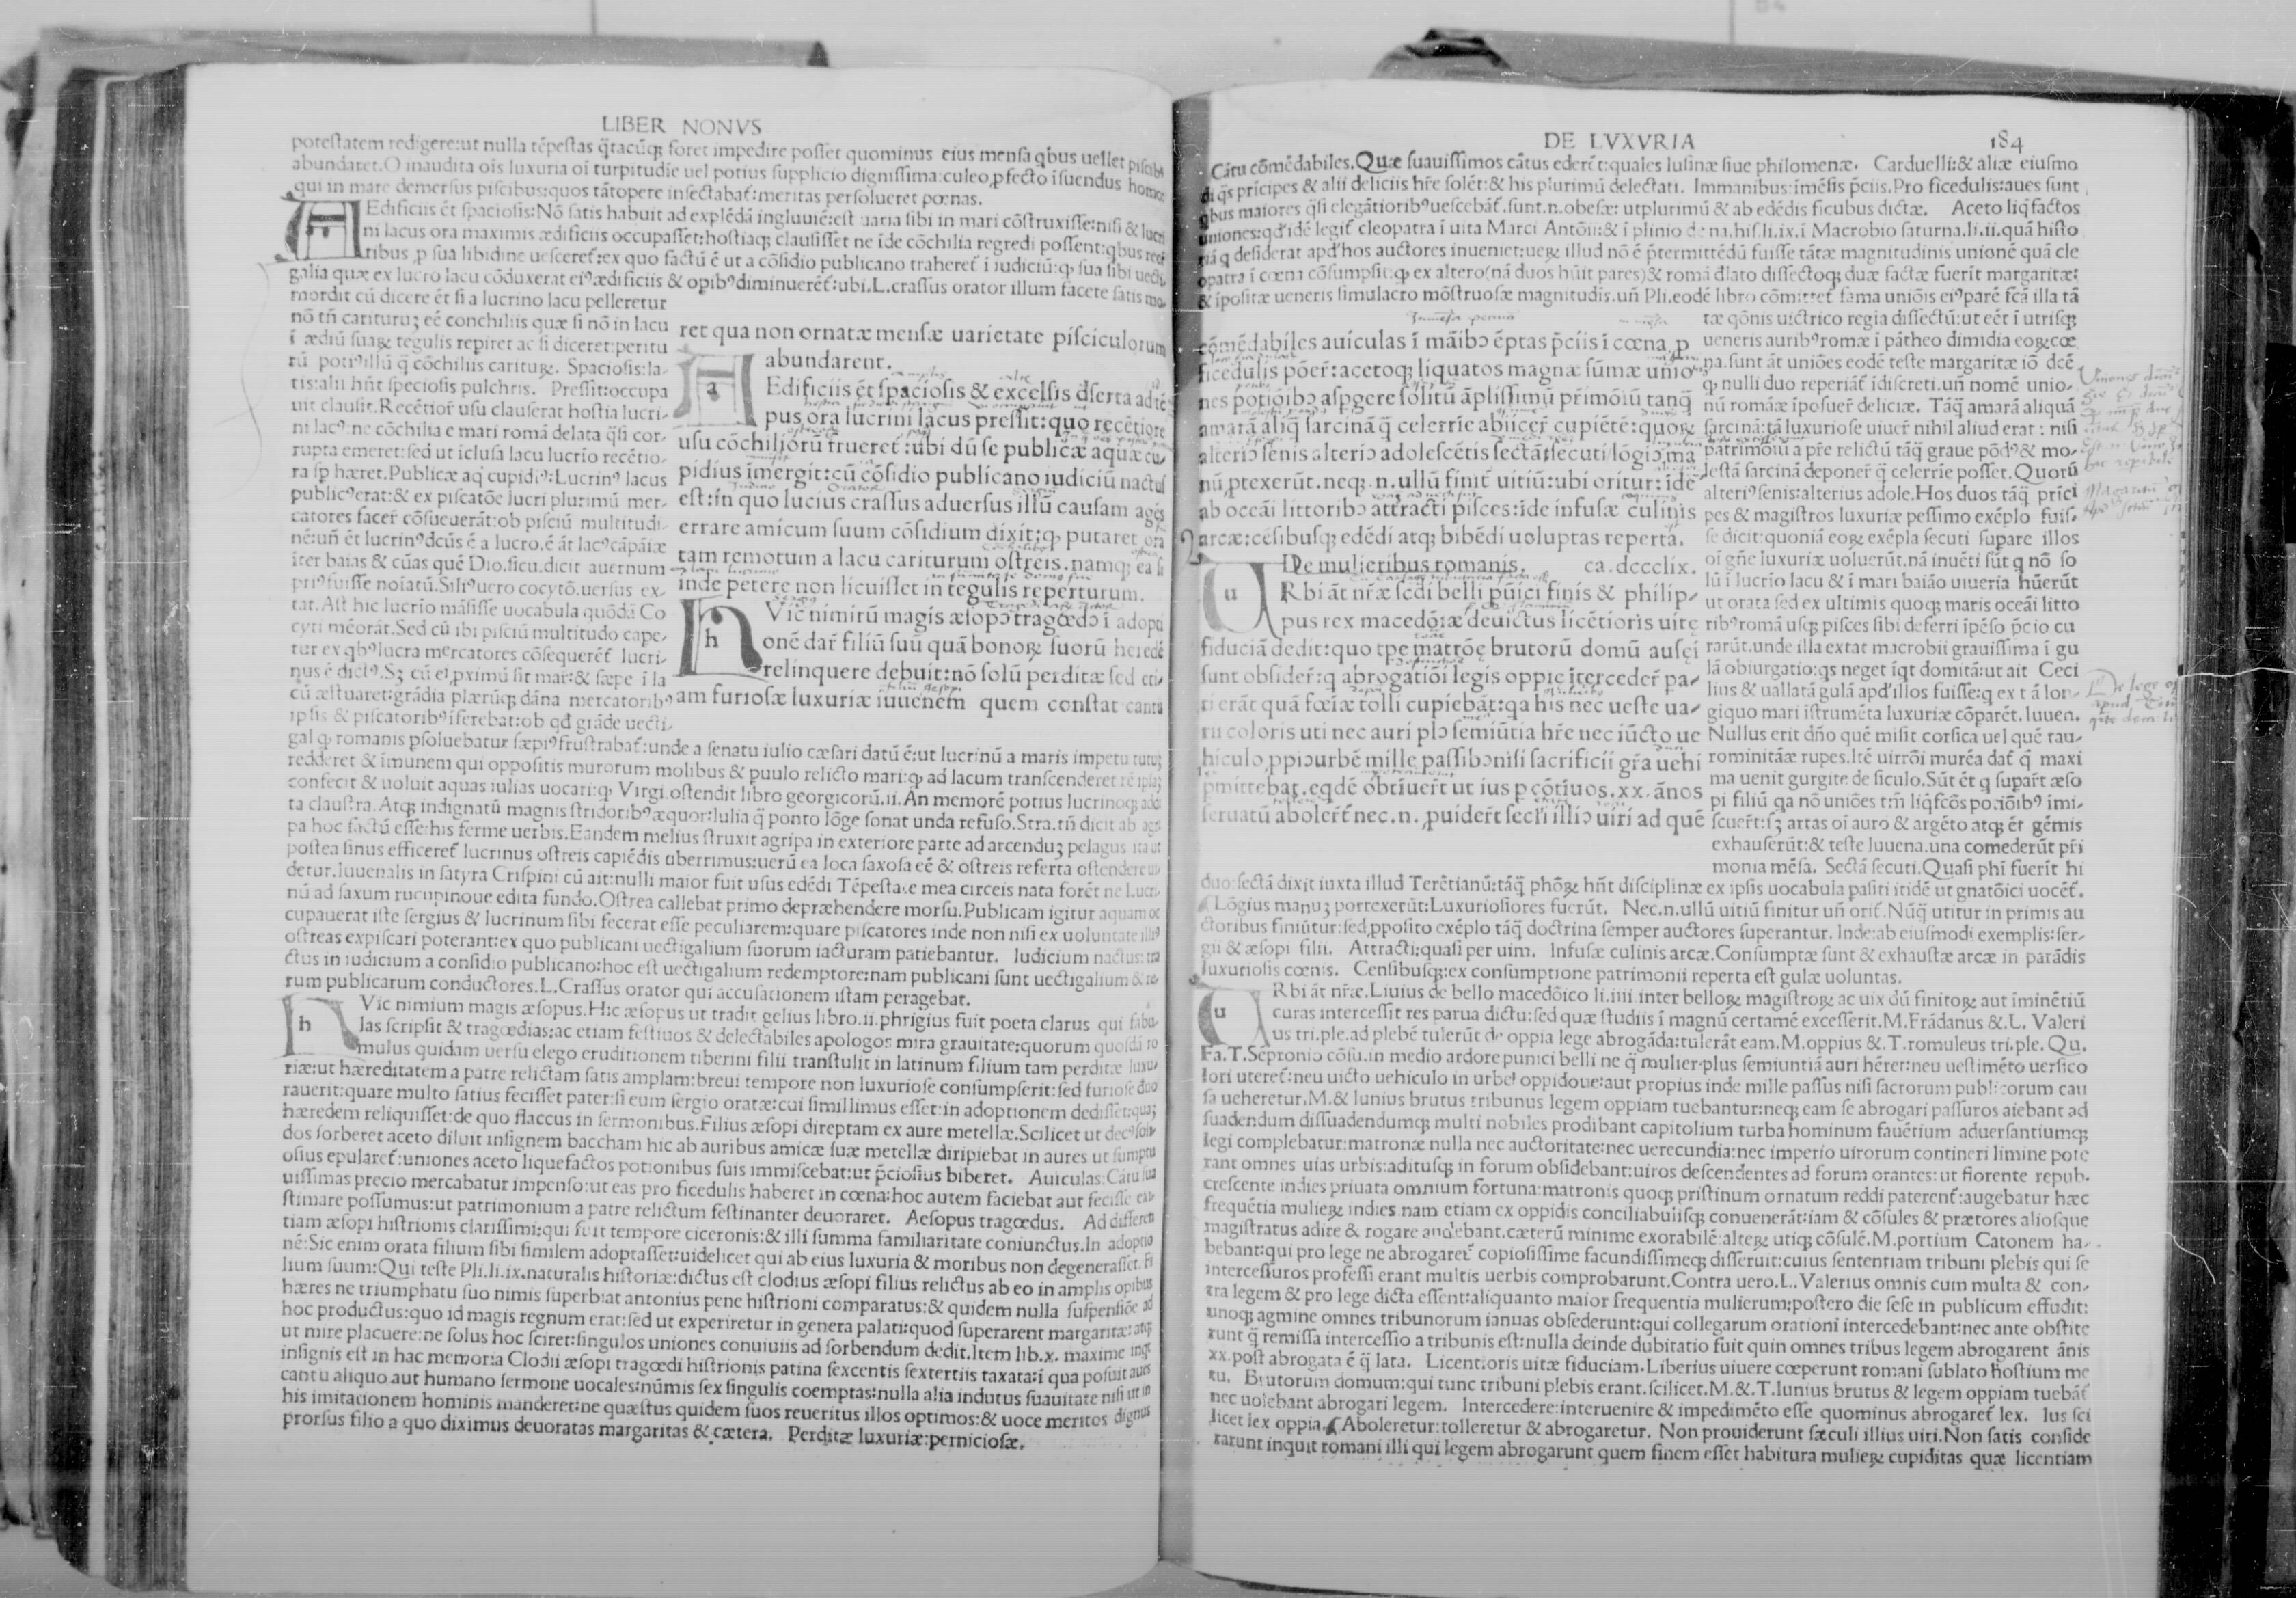 LIBER NONVS
potestatem redigere:ut nulla tẽpestas q̃tacũq; foret impedire posset quominus eius mensa qbus uellet piscibꝰ
abundaret.O inaudita oĩs luxuria oĩ turpitudie uel potius supplicio dignissima:culeo ꝓfecto ĩsuendus homo:
qui in mare demersus piscibus:quos tãtopere insectabat̃:meritas persolueret pœnas.
AEdificiis ẽt spaciosis:Nõ satis habuit ad explẽdã ingluuiẽ:est uaria sibi in mari cõstruxisse:nisi & lucri
ni lacus ora maximis ædificiis occupasset:hostiaq; clausisset ne ĩde cõchilia regredi possent:qbus reti
tribus ꝓ sua libidine uesceret̃:ex quo factũ ẽ ut a cõsidio publicano traheret̃ ĩ iudiciũ:qꝫ sua sibi uecti
galia quæ ex lucro lacu cõduxerat eiꝰædificiis & opibꝰdiminuerẽt̃:ubi.L.crassus orator illum facete satis mo-
mordit cũ dicere ẽt si a lucrino lacu pelleretur
nõ tñ carituruꝫ eẽ conchiliis quæ si nõ in lacu
ĩ ædiũ suaꝝ tegulis repiret ac si diceret:peritu
rũ potiꝰillũ q̃ cõchiliis carituꝝ. Spaciosis:la-
tis:alii hñt speciosis pulchris. Pressit:occupa
uit clausit.Recẽtiorẽ usu clauserat hostia lucri-
ni lacꝰ:ne cõchilia e mari romã delata q̃si cor-
rupta emeret:sed ut ĩclusa lacu lucrio recẽtio-
ra sp̃ hæret.Publicæ aq̃ cupidiꝰ:Lucrinꝰ lacus
publicꝰerat:& ex piscatõe lucri plurimũ mer-
catores facer̃ cõsueuerãt:ob pisciũ multitudi-
nẽ:uñ ẽt lucrinꝰdcũs ẽ a lucro.ẽ ãt lacꝰcãpãiæ
ĩter baias & cũas quẽ Dio.sicu.dicit auernum
priꝰfuisse noĩatũ.Siliꝰuero cocytõ.uersus ex-
tat.Ast hic lucrĩo mãsisse uocabula quõdã Co
cyti mẽorãt.Sed cũ ibi pisciũ multitudo cape-
tur ex qbꝰlucra mercatores cõsequerẽt̃ lucri-
nus ẽ dictꝰ.Sꝫ cũ ei ꝓximũ sit mar̃:& sæpe ĩ la
cũ æstuaret:grãdia plærũq; dãna mercatoribꝰ
ipsis & piscatoribꝰĩferebat:ob qđ grãde uecti-
ret qua non ornatæ mensæ uarietate pisciculorum
abundarent.
AEdificiis ẽt spaciosis & excelsis đserta ad tẽ
pus ora lucrini lacus pressit:quo recẽtiore
usu cõchiliorũ frueret̃:ubi dũ se publicæ aquæ cu-
pidius ĩmergit:cũ cõsidio publicano iudiciũ nactus
est:in quo lucius crassus aduersus illũ causam agẽs
errare amicum suum cõsidium dixit:qꝫ putaret ora
tam remotum a lacu cariturum ostreis.namq; ea si
inde petere non licuisset in tegulis reperturum.
HVic nimirũ magis æsopꝰ tragœdꝰ ĩ adopti
onẽ dar̃ filiũ suũ quã bonoꝝ suorũ heredẽ
relinquere debuit:nõ solũ perditæ sed eti-
am furiosæ luxuriæ iuuenem quem constat cantu
gal qꝫ romanis ꝑsoluebatur sæpiꝰfrustrabat̃:unde a senatu iulio cæsari datũ ẽ:ut lucrinũ a maris impetu tutuꝫ
redderet & ĩmunem qui oppositis murorum molibus & puulo relicto mari:qꝫ ad lacum transcenderet rẽ ipsaꝫ
confecit & uoluit aquas iulias uocari:qꝫ Virgi.ostendit libro georgicorũ.ii.An memorẽ potius lucrinoq; addi
ta claustra.Atq; indignatũ magnis stridoribꝰæquor:Iulia q̃ ponto lõge sonat unda refuso.Stra.tñ dicit ab agri
pa hoc factũ esse:his ferme uerbis.Eandem melius struxit agripa in exteriore parte ad arcenduꝫ pelagus ita ut
postea sinus efficeret̃ lucrinus ostreis capiẽdis uberrimus:uerũ ea loca saxosa eẽ & ostreis referta ostendere ui-
detur.Iuuenalis in satyra Crispini cũ ait:nulli maior fuit usus edẽdi Tẽpestate mea circeis nata forẽt ne Lucri-
nũ ad saxum rucupinoue edita fundo.Ostrea callebat primo depræhendere morsu.Publicam igitur aquam oc
cupauerat iste sergius & lucrinum sibi fecerat esse peculiarem:quare piscatores inde non nisi ex uoluntate illiꝰ
ostreas expiscari poterant:ex quo publicani uectigalium suorum iacturam patiebantur. Iudicium nactus:tra
ctus in iudicium a considio publicano:hoc est uectigalium redemptore:nam publicani sunt uectigalium & re-
rum publicarum conductores.L.Crassus orator qui accusationem istam peragebat.
HVic nimium magis æsopus.Hic æsopus ut tradit gelius libro.ii.phrigius fuit poeta clarus qui fabu-
las scripsit & tragœdias:ac etiam festiuos & delectabiles apologos mira grauitate:quorum quosdã ro
mulus quidam uersu elego eruditionem tiberini filii transtulit in latinum filium tam perditæ luxu-
riæ:ut hæreditatem a patre relictam satis amplam:breui tempore non luxuriose consumpserit:sed furiose duo
rauerit:quare multo satius fecisset pater:si eum sergio oratæ:cui simillimus esset:in adoptionem dedisset:quaꝫ
hæredem reliquisset:de quo flaccus in sermonibus.Filius æsopi direptam ex aure metellæ.Scilicet ut decꝰsoli-
dos sorberet aceto diluit insignem baccham hic ab auribus amicæ suæ metellæ diripiebat in aures ut sumptu
osius epularet̃:uniones aceto liquefactos potionibus suis immiscebat:ut p̃ciosius biberet. Auiculas:Cãtu sua
uissimas precio mercabatur impenso:ut eas pro ficedulis haberet in cœna:hoc autem faciebat aut fecisse exi-
stimare possumus:ut patrimonium a patre relictum festinanter deuoraret. Aesopus tragœdus. Ad differen
tiam æsopi histrionis clarissimi:qui fuit tempore ciceronis:& illi summa familiaritate coniunctus.In adoptio
nẽ:Sic enim orata filium sibi similem adoptasset:uidelicet qui ab eius luxuria & moribus non degenerasset.Fi
lium suum:Qui teste Pli.li.ix.naturalis historiæ:dictus est clodius æsopi filius relictus ab eo in amplis opibus
hæres ne triumphatu suo nimis superbiat antonius pene histrioni comparatus:& quidem nulla suspensiõe ad
hoc productus:quo id magis regnum erat:sed ut experiretur in genera palati:quod superarent margaritæ:atq;
ut mire placuere:ne solus hoc sciret:singulos uniones conuiuiis ad sorbendum dedit.Item lib.x. maxime inqt
insignis est in hac memoria Clodii æsopi tragœdi histrionis patina sexcentis sextertiis taxata:ĩ qua posuit aues
cantu aliquo aut humano sermone uocales:nũmis sex singulis coemptas:nulla alia indutus suauitate nisi ut in
his imitationem hominis manderet:ne quæstus quidem suos reueritus illos optimos:& uoce meritos dignus
prorsus filio a quo diximus deuoratas margaritas & cætera. Perditæ luxuriæ:perniciosæ.
DE LVXVRIA
184
Cãtu cõmẽdabiles.Quæ suauissimos cãtus ederẽt:quales lusinæ siue philomenæ. Carduelli:& aliæ eiusmo
di q̃s prĩcipes & alii deliciis hr̃e solẽt:& his plurimũ delectati. Immanibus:ĩmẽsis p̃ciis.Pro ficedulis:aues sunt
qbus maiores q̃si elegãtioribꝰuescebãt̃.sunt.n.obesæ: utplurimũ & ab edẽdis ficubus dictæ. Aceto liq̃factos
uniones:qđ'idẽ legit̃ cleopatra ĩ uita Marci Antõii:& ĩ plinio de na.his.li.ix.ĩ Macrobio saturna.li.ii.quã histo
riã q desiderat apđ'hos auctores inueniet:ueꝝ illud nõ ẽ p̃termittẽdũ fuisse tãtæ magnitudinis unionẽ quã cle
opatra ĩ cœna cõsumpsit:qꝫ ex altero(nã duos hũit pares)& romã đlato dissectoq; duæ factæ fuerĩt margaritæ:
& ĩpositæ ueneris simulacro mõstruosæ magnitudis.uñ Pli.eodẽ libro cõmittet̃ fama uniõis eiꝰparẽ fcã illa tã
cõmẽdabiles auiculas ĩ mãibꝰ ẽptas p̃ciis ĩ cœna ꝓ
ficedulis põer̃:acetoq; liquatos magnæ sũmæ unio
nes potiõibꝰ asꝑgere solitũ ãplissimũ pr̃imõiũ tanq̃
amarã aliq̃ sarcinã q̃ celerrĩe abiicer̃ cupiẽtẽ:quoꝝ
alteriꝰ senis alteriꝰ adolescẽtis sectã secuti lõgiꝰ ma
nũ ꝓtexerũt.neq; n.ullũ finit̃ uitiũ:ubi oritur:ĩde
ab oceãi littoribꝰ attracti pisces:ĩde infusæ culinis
arcæ:cẽsibusq; edẽdi atq; bibẽdi uoluptas reperta.
De mulieribus romanis. ca.dccclix.
URbi ãt nr̃æ scđi belli pũici finis & philip-
pus rex macedõiæ deuictus licẽtioris uitę
fiduciã dedit:quo tꝑe matrõę brutorũ domũ ausęi
sunt obsider̃:q abrogatiõi legis oppie ĩterceder̃ pa-
ti erãt quã fœĩæ tolli cupiebãt:qa his nec ueste ua-
rii coloris uti nec auri plꝰ semiũtia hr̃e nec iũcto ue
hiculo ꝓpiꝰurbẽ mille passibꝰnisi sacrificii gr̃a uehi
ꝑmittebat.eqdẽ obtĩuer̃t ut ius p cõtĩuos.xx.ãnos
seruatũ abolerẽt̃ nec.n. ꝓuider̃t secli illiꝰ uiri ad quẽ
tæ qõnis uictrico regia dissectũ:ut eẽt ĩ utrisq;
ueneris auribꝰromæ ĩ pãtheo dimidia eoꝝcœ
na.sunt ãt uniões eodẽ teste margaritæ iõ dcẽ
qꝫ nulli duo reperiãt̃ ĩdiscreti.uñ nomẽ unio-
nũ romãæ ĩposuer̃ deliciæ. Tãq̃ amarã aliquã
sarcinã:tã luxuriose uiuer̃ nihil aliud erat : nisi
patrimõiũ a pr̃e relictũ tãq̃ graue põdꝰ& mo-
lestã sarcinã deponer̃ q̃ celerrĩe posset.Quorũ
alteriꝰsenis:alterius adole.Hos duos tãq̃ prĩci
pes & magistros luxuriæ pessimo exẽplo fuis-
se dicit:quoniã eoꝝ exẽpla secuti supare illos
oĩ gñe luxuriæ uoluerũt.nã inuẽti sũt q nõ so
lũ ĩ lucrio lacu & ĩ mari baiãο uiueria hũerũt
ut orata sed ex ultimis quoq; maris oceãi litto
ribꝰromã usq; pisces sibi deferri ĩpẽso p̃cio cu
rarũt.unde illa extat macrobii grauissima ĩ gu
lã obiurgatio:qs neget ĩqt domitã:ut ait Ceci
lius & uallatã gulã apđ'illos fuisse:q ex t ã lon-
giquo mari ĩstrumẽta luxuriæ cõparẽt.Iuuen.
Nullus erit dño quẽ misit corsica uel quẽ tau-
rominitãæ rupes.Itẽ uirrõi murẽa dat̃ q̃ maxi
ma uenit gurgite de siculo.Sũt ẽt q supar̃t æso
pi filiũ qa nõ uniões tm̃ liq̃fcõs potiõibꝰ imi-
scuer̃t:sꝫ artas oĩ auro & argẽto atq; ẽt gẽmis
exhauserũt:& teste Iuuena.una comederũt pr̃i
monia mẽsa. Sectã secuti.Quasi phĩ fuerĩt hi
duo:sectã dixit iuxta illud Terẽtianũ:tãq̃ phõꝝ hñt disciplinæ ex ipsis uocabula pasiti itidẽ ut gnatõici uocẽt̃.
Lõgius manuꝫ porrexerũt:Luxuriosiores fuerũt. Nec.n.ullũ uitiũ finitur uñ orit̃.Nũq̃ utitur in primis au
ctoribus finiũtur:sed ꝓposito exẽplo tãq̃ doctrina semper auctores superantur. Inde:ab eiusmodi exemplis:ser-
gii & æsopi filii. Attracti:quasi per uim. Infusæ culinis arcæ.Consumptæ sunt & exhaustæ arcæ in parãdis
luxuriosis cœnis. Censibusq;:ex consumptione patrimonii reperta est gulæ uoluntas.
URbi ãt nr̃æ.Liuius de bello macedõico li.iiii.inter belloꝝ magistroꝝ ac uix dũ finitoꝝ aut ĩminẽtiũ
curas intercessit res parua dictu:sed quæ studiis ĩ magnũ certamẽ excesserit.M.Frãdanus &.L. Valeri
us tri.ple.ad plebẽ tulerũt de oppia lege abrogãda:tulerãt eam.M.oppius &.T.romuleus tri.ple. Qu.
Fa.T.Sẽpronio cõsu.in medio ardore punici belli ne q̃ mulier plus semiuntiã auri hẽret:neu uestimẽto uersico
lori uteret̃:neu uicto uehiculo in urbe oppidoue:aut propius inde mille passus nisi sacrorum publicorum cau
sa ueheretur.M.& Iunius brutus tribunus legem oppiam tuebantur:neq; eam se abrogari passuros aiebant ad
suadendum dissuadendumq; multi nobiles prodibant capitolium turba hominum fauẽtium aduersantiumq;
legi complebatur:matronæ nulla nec auctoritate:nec uerecundia:nec imperio uirorum contineri limine pote
rant omnes uias urbis:aditusq; in forum obsidebant:uiros descendentes ad forum orantes:ut florente repub.
crescente indies priuata omnium fortuna:matronis quoq; pristinum ornatum reddi paterent̃:augebatur hæc
frequẽtia mulieꝝ indies nam etiam ex oppidis conciliabulisq; conuenerãt:iam & cõsules & prætores aliosque
magistratus adire & rogare audebant.cæterũ minime exorabilẽ:alteꝝ utiq; cõsulẽ.M.portium Catonem ha-
bebant:qui pro lege ne abrogaret̃ copiosissime facundissimeq; disseruit:cuius sententiam tribuni plebis qui se
intercessuros professi erant multis uerbis comprobarunt.Contra uero.L.Valerius omnis cum multa & con-
tra legem & pro lege dicta essent:aliquanto maior frequentia mulierum:postero die sese in publicum effudit:
unoq; agmine omnes tribunorum ianuas obsederunt:qui collegarum orationi intercedebant:nec ante obstite
runt q̃ remissa intercessio a tribunis est:nulla deinde dubitatio fuit quin omnes tribus legem abrogarent ãnis
xx.post abrogata ẽ q̃ lata. Licentioris uitæ fiduciam.Liberius uiuere cœperunt romani sublato hostium me
tu. Brutorum domum:qui tunc tribuni plebis erant.scilicet.M.&.T.Iunius brutus & legem oppiam tuebãt̃
nec uolebant abrogari legem. Intercedere:interuenire & impedimẽto esse quominus abrogaret̃ lex. Ius sci
licet lex oppia. Aboleretur:tolleretur & abrogaretur. Non prouiderunt sæculi illius uiri.Non satis conside
rarunt inquit romani illi qui legem abrogarunt quem finem esset habitura mulieꝝ cupiditas quæ licentiam